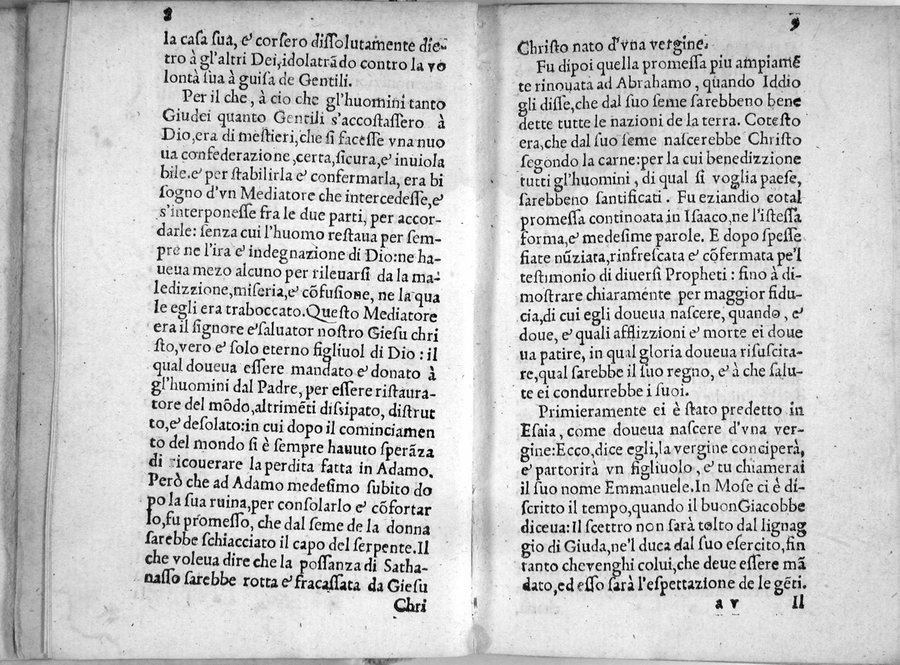 8
la casa sua, e' corsero dissolutamente die-
tro à gl'altri Dei,idolatrãdo contro la vo
lontà sua à guisa de Gentili.
Per il che, à cio che gl'huomini tanto
Giudei quanto Gentili s'accostassero à
Dio,era di mestieri,che si facesse vna nuo
ua confederazione,certa,sicura,e' inuiola
bile.e' per stabilirla e' confermarla, era bi
sogno d'vn Mediatore che intercedesse,e'
s'interponesse fra le due parti, per accor-
darle: senza cui l'huomo restaua per sem-
pre ne l'ira e' indegnazione di Dio:ne ha-
ueua mezo alcuno per rileuarsi da la ma-
ledizzione,miseria,e' cõfusione, ne la qua
le egli era traboccato.Questo Mediatore
era il signore e'saluator nostro Giesu chri
sto,vero e' solo eterno figliuol di Dio : il
qual doueua essere mandato e' donato à
gl'huomini dal Padre, per essere ristaura-
tore del mõdo,altrimẽti dissipato, distrut
to,e' desolato:in cui dopo il cominciamen
to del mondo si è sempre hauuto sperãza
di ricouerare la perdita fatta in Adamo.
Però che ad Adamo medesimo subito do
po la sua ruina,per consolarlo e' cõfortar
lo,fu promesso, che dal seme de la donna
sarebbe schiacciato il capo del serpente.Il
che voleua dire che la possanza di Satha-
nasso sarebbe rotta e' fracassata da Giesu
Chri
9
Christo nato d'vna vergine.
Fu dipoi quella promessa piu ampiamẽ
te rinouata ad Abrahamo, quando Iddio
gli disse,che dal suo seme sarebbeno bene
dette tutte le nazioni de la terra. Cotesto
era,che dal suo seme nascerebbe Christo
segondo la carne:per la cui benedizzione
tutti gl'huomini, di qual si voglia paese,
sarebbeno santificati. Fu eziandio cotal
promessa continoata in Isaaco,ne l'istessa
forma,e' medesime parole. E dopo spesse
fiate nũziata,rinfrescata e' cõfermata pe'l
testimonio di diuersi Propheti : fino à di-
mostrare chiaramente per maggior fidu-
cia,di cui egli doueua nascere, quando, e'
doue, e' quali afflizzioni e' morte ei doue
ua patire, in qual gloria doueua risuscita-
re,qual sarebbe il suo regno, e' à che salu-
te ei condurrebbe i suoi.
Primieramente ei è stato predetto in
Esaia, come doueua nascere d'vna ver-
gine:Ecco,dice egli,la vergine conciperà,
e' partorirà vn figliuolo, e' tu chiamerai
il suo nome Emmanuele.In Mose ci è di-
scritto il tempo,quando il buonGiacobbe
diceua:Il scettro non sarà tolto dal lignag
gio di Giuda,ne'l duca dal suo esercito,fin
tanto chevenghi colui,che deue essere mã
dato,ed esso sarà l'espettazione de le gẽti.
a v Il